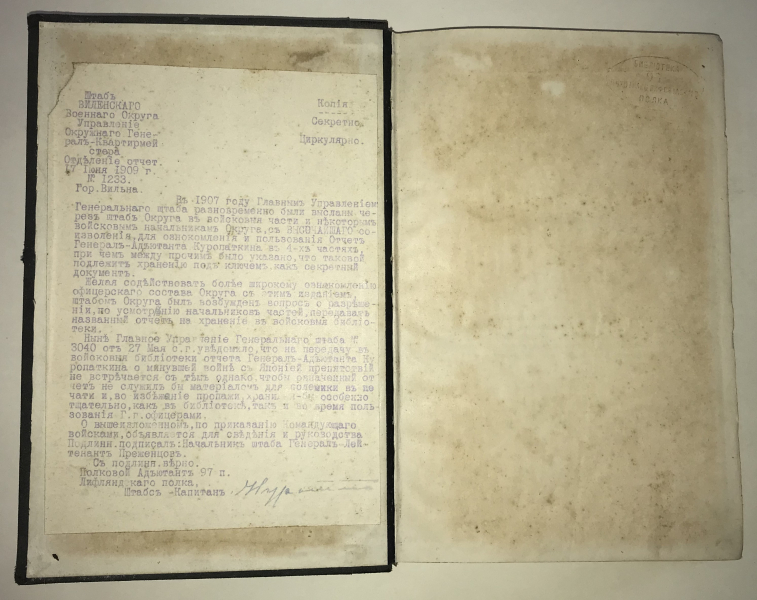 Штабъ
ВИЛЕНСКАГО
Военнаго Округа
Управленіе
Окружнаго Гене-
ралъ-Квартирмей
стера
Отдѣленіе отчет.
17 Іюня 1909 г.
№ 1233.
Гор.Вильна.
Копія
Секретно.
Циркулярно.
Въ 1907 году Главнымъ Управленіем
Генеральнаго штаба разновременно были высланы че-
резъ штабъ Округа въ войсковыя части и нѣкоторым
войсковымъ начальникамъ Округа,съ ВЫСОЧАЙШАГО со-
изволенія,для ознокомленія и пользованія Отчетъ
Генералъ-Адъютанта Куропаткина въ 4-хъ частяхъ,
при чемъ между прочимъ было указано,что таковой
подлежитъ храненію подъ ключемъ,какъ секретный
документъ.
Желая содѣйствовать болѣе широкому ознакомленію
офицерскаго состава Округа съ этимъ изданіемъ,
штабомъ Округа былъ возбужденъ вопросъ о разрѣше-
ніи,по усмотрѣнію начальниковъ частей,передавать
названный отчетъ на храненіе въ войсковыя библіо-
теки.
Нынѣ Главное Управленіе Генеральнаго штаба №
3040 отъ 27 Мая с.г.увѣдомило,что на передачу въ
войсковыя библіотеки отчета Генералъ-Адъютанта Ку
ропаткина о минувшей войнѣ съ Японіей препятствій
не встрѣчается съ тѣмъ однако,чтобы означенный от
четъ не служилъ бы матеріаломъ для полемики въ пе
чати и,во избѣжаніе пропажи,хранился-бы особенно
тщательно,какъ въ библіотекѣ,такъ и во время поль-
зованія Г.г.офицерами.
О вышеизложенномъ,по приказанію Командующаго
войсками,объявляется для свѣдѣнія и руководства
Подлин.подписалъ:Начальникъ штаба Генералъ-Лей-
тенантъ Преженцовъ.
Съ подлин.вѣрно.
Полковой Адъютантъ 97 п.
Лифляндскаго полка,
Штабсъ-Капитанъ
БИБЛІОТЕКА
ПОЛКА